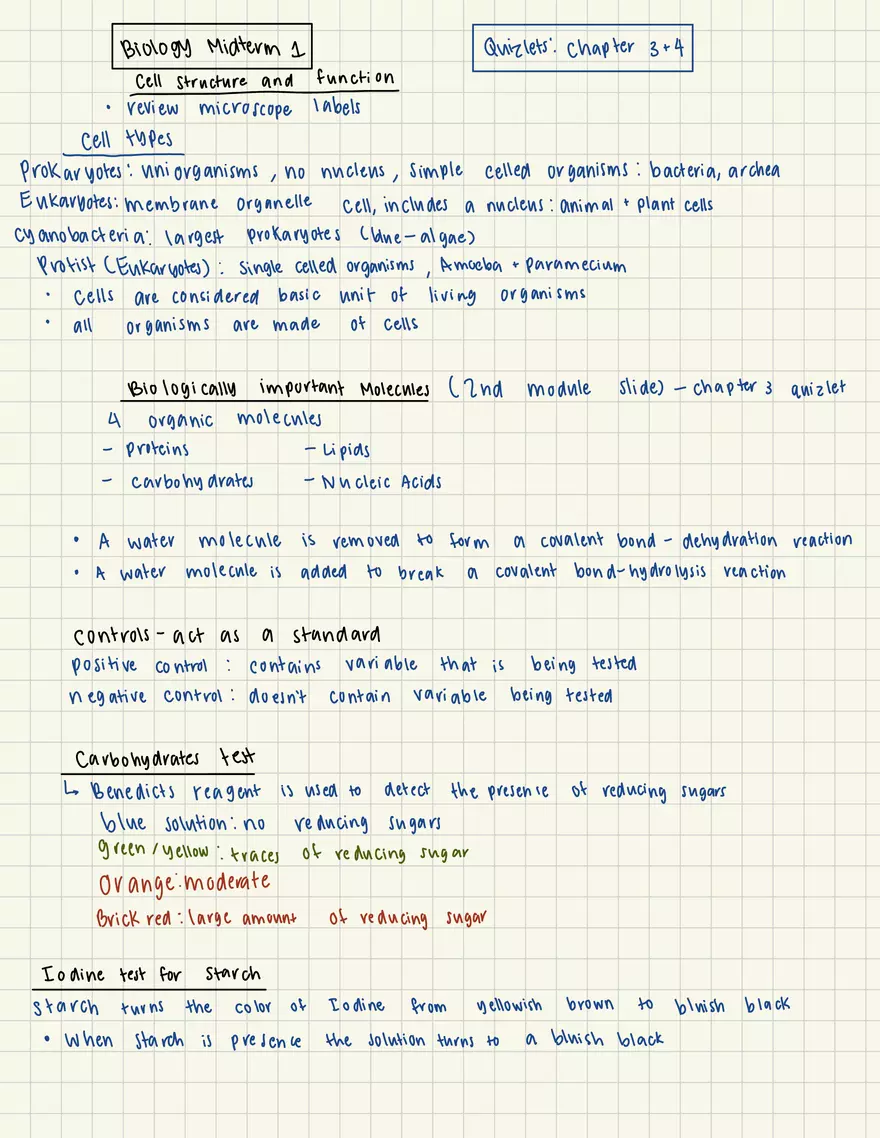 Biology Midterm 1
Quizlets: Chapter 3+4
Cell structure and function
• review microscope labels
Cell types
Prokaryotes: uniorganisms, no nucleus, simple celled organisms: bacteria, archea
Eukaryotes: membrane organelle cell, includes a nucleus: animal + plant cells
cyanobacteria: largest prokaryotes (blue-algae)
Protist (Eukaryotes): single celled organisms, Amoeba + Paramecium
• Cells are considered basic unit of living organisms
• all organisms are made of cells
Biologically important Molecules (2nd module slide) - chapter 3 quizlet
4 organic molecules
- Proteins - Lipids
- carbohydrates - Nucleic Acids
• A water molecule is removed to form a covalent bond - dehydration reaction
• A water molecule is added to break a covalent bond-hydrolysis reaction
Controls - act as a standard
positive control: contains variable that is being tested
negative control: doesn't contain variable being tested
Carbohydrates test
↳ Benedicts reagent is used to detect the presence of reducing sugars
blue solution: no reducing sugars
green/yellow: traces of reducing sugar
Orange: moderate
Brick red: large amount of reducing sugar
Iodine test for Starch
Starch turns the color of Iodine from yellowish brown to bluish black
• When starch is presence the solution turns to a bluish black